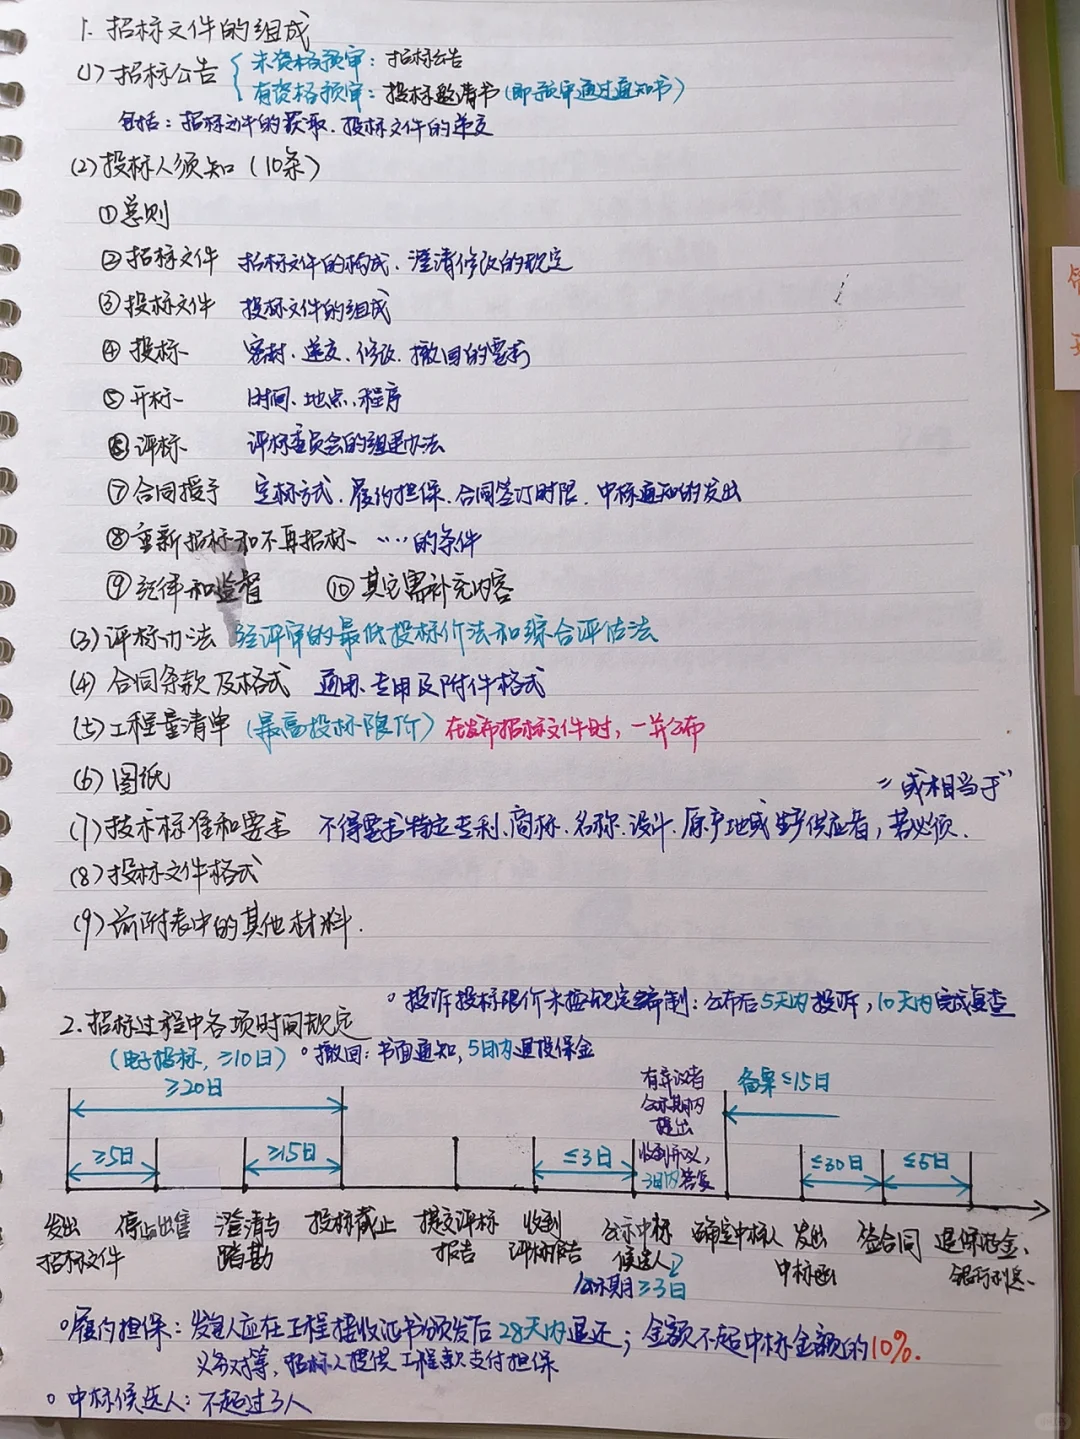 1. 招标文件的组成
(1) 招标公告 { 未资格预审：招标公告
有资格预审：投标邀请书（即预审通过通知书）
包括：招标文件的获取、投标文件的递交
(2) 投标人须知（10条）
①总则
②招标文件 招标文件的构成、澄清修改的规定
③投标文件 投标文件的组成
④投标 密封、递交、修改、撤回的要求
⑤开标 时间、地点、程序
⑥评标 评标委员会的组建办法
⑦合同授予 定标方式、履约担保、合同签订时限、中标通知的发出
⑧重新招标和不再招标 ……的条件
⑨纪律和监督 ⑩其它需补充内容
(3) 评标办法 经评审的最低投标价法和综合评估法
(4) 合同条款及格式 通用、专用及附件格式
(5) 工程量清单（最高投标限价）在发布招标文件时，一并公布
(6) 图纸
“或相当于”
(7) 技术标准和要求 不得要求特定专利、商标、名称、设计、原产地或生产供应者，若必须、
(8) 投标文件格式
(9) 前附表中的其他材料.
投诉投标限价未按规定编制：公布后5天内投诉，10天内完成复查
2. 招标过程中各项时间规定
（电子招标，≥10日）
撤回：书面通知，5日内退投保金
≥20日
有异议者
公示期内
提出
收到异议，
3日内答复
备案≤15日
≥5日 ≥15日 ≤3日 ≤30日 ≤5日
发出 停止出售 澄清与 投标截止 提交评标 收到 公示中标 确定中标人 发出 签合同 退保证金、
招标文件 踏勘 报告 评标报告 候选人 中标函 银行利息
公示期≥3日
履约担保：发包人应在工程接收证书颁发后28天内退还；金额不超中标金额的10%.
义务对等，招标人提供工程款支付担保
中标候选人：不超过3人